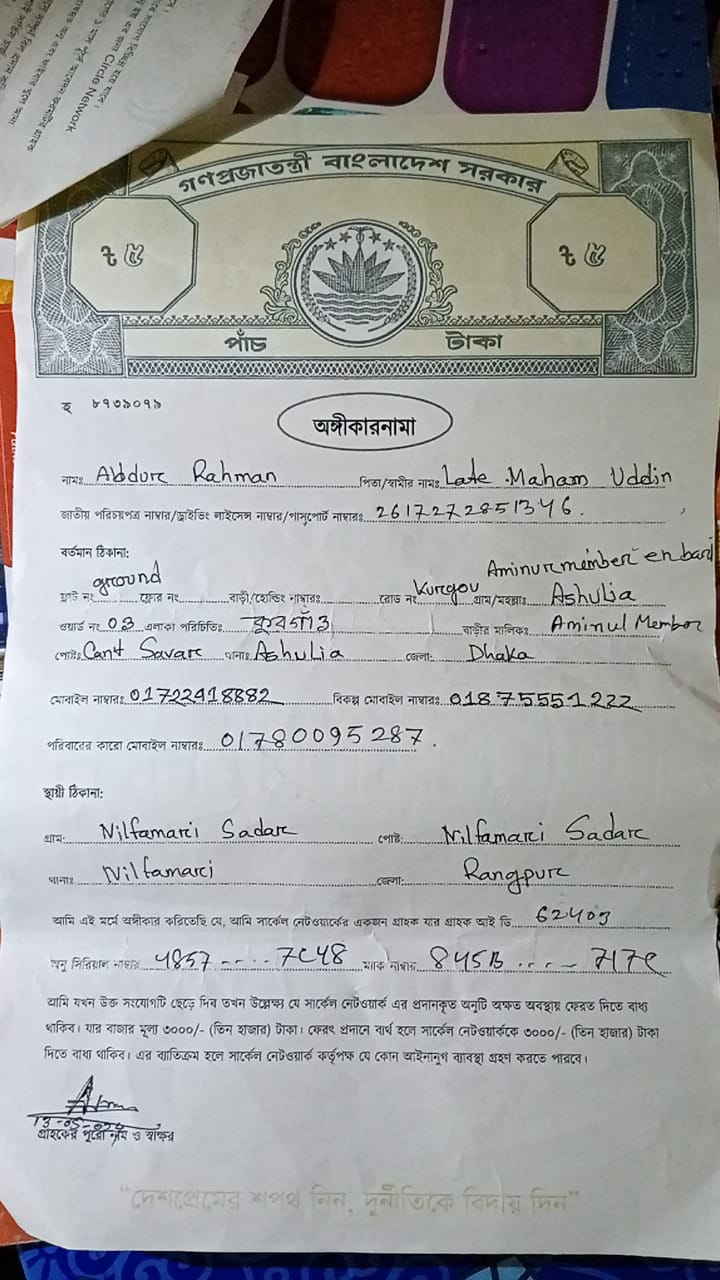 Circle Network
গণপ্রজাতন্ত্রী বাংলাদেশ সরকার
৳ ৫ ৳ ৫
পাঁচ টাকা
হ ৮৭৩৯০৭৯
অঙ্গীকারনামা
নামঃ Abdur Rahman পিতা/স্বামীর নামঃ Late. Maham Uddin
জাতীয় পরিচয়পত্র নাম্বার/ড্রাইভিং লাইসেন্স নাম্বার/পাসপোর্ট নাম্বারঃ 2617272851346.
বর্তমান ঠিকানা:
Aminur member en bari
ফ্লাট নং ground ফ্লোর নং বাড়ী/হোল্ডিং নাম্বারঃ রোড নং Kurgou গ্রাম/মহল্লাঃ Ashulia
ওয়ার্ড নং 03 এলাকা পরিচিতিঃ বাড়ীর মালিকঃ Aminul Membor
পোষ্টঃ Cant Savar থানাঃ Ashulia জেলা: Dhaka
মোবাইল নাম্বারঃ 01722918882 বিকল্প মোবাইল নাম্বারঃ 01875551222
পরিবারের কারো মোবাইল নাম্বারঃ 01780095287.
স্থায়ী ঠিকানা:
গ্রাম: Nilfamari Sadar পোষ্ট: Nilfamari Sadar
থানাঃ Nilfamari জেলা: Rangpur
আমি এই মর্মে অঙ্গীকার করিতেছি যে, আমি সার্কেল নেটওয়ার্কের একজন গ্রাহক যার গ্রাহক আই ডি 62403
অনু সিরিয়াল নাম্বার 4857 ---- 7C48 ম্যাক নাম্বার 845B ---- 717C
আমি যখন উক্ত সংযোগটি ছেড়ে দিব তখন উল্লেক্ষ্য যে সার্কেল নেটওয়ার্ক এর প্রদানকৃত অনুটি অক্ষত অবস্থায় ফেরত দিতে বাধ্য
থাকিব। যার বাজার মূল্য ৩০০০/- (তিন হাজার) টাকা। ফেরৎ প্রদানে ব্যর্থ হলে সার্কেল নেটওয়ার্ককে ৩০০০/- (তিন হাজার) টাকা
দিতে বাধ্য থাকিব। এর ব্যতিক্রম হলে সার্কেল নেটওয়ার্ক কর্তৃপক্ষ যে কোন আইনানুগ ব্যাবস্থা গ্রহণ করতে পারবে।
13-05-024
গ্রাহকের পুরো নাম ও স্বাক্ষর
"দেশপ্রেমের শপথ নিন, দুর্নীতিকে বিদায় দিন"